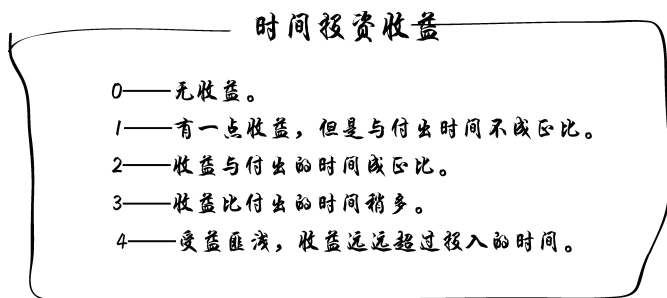 时间投资收益
0——无收益。
1——有一点收益，但是与付出时间不成正比。
2——收益与付出的时间成正比。
3——收益比付出的时间稍多。
4——受益匪浅，收益远远超过投入的时间。